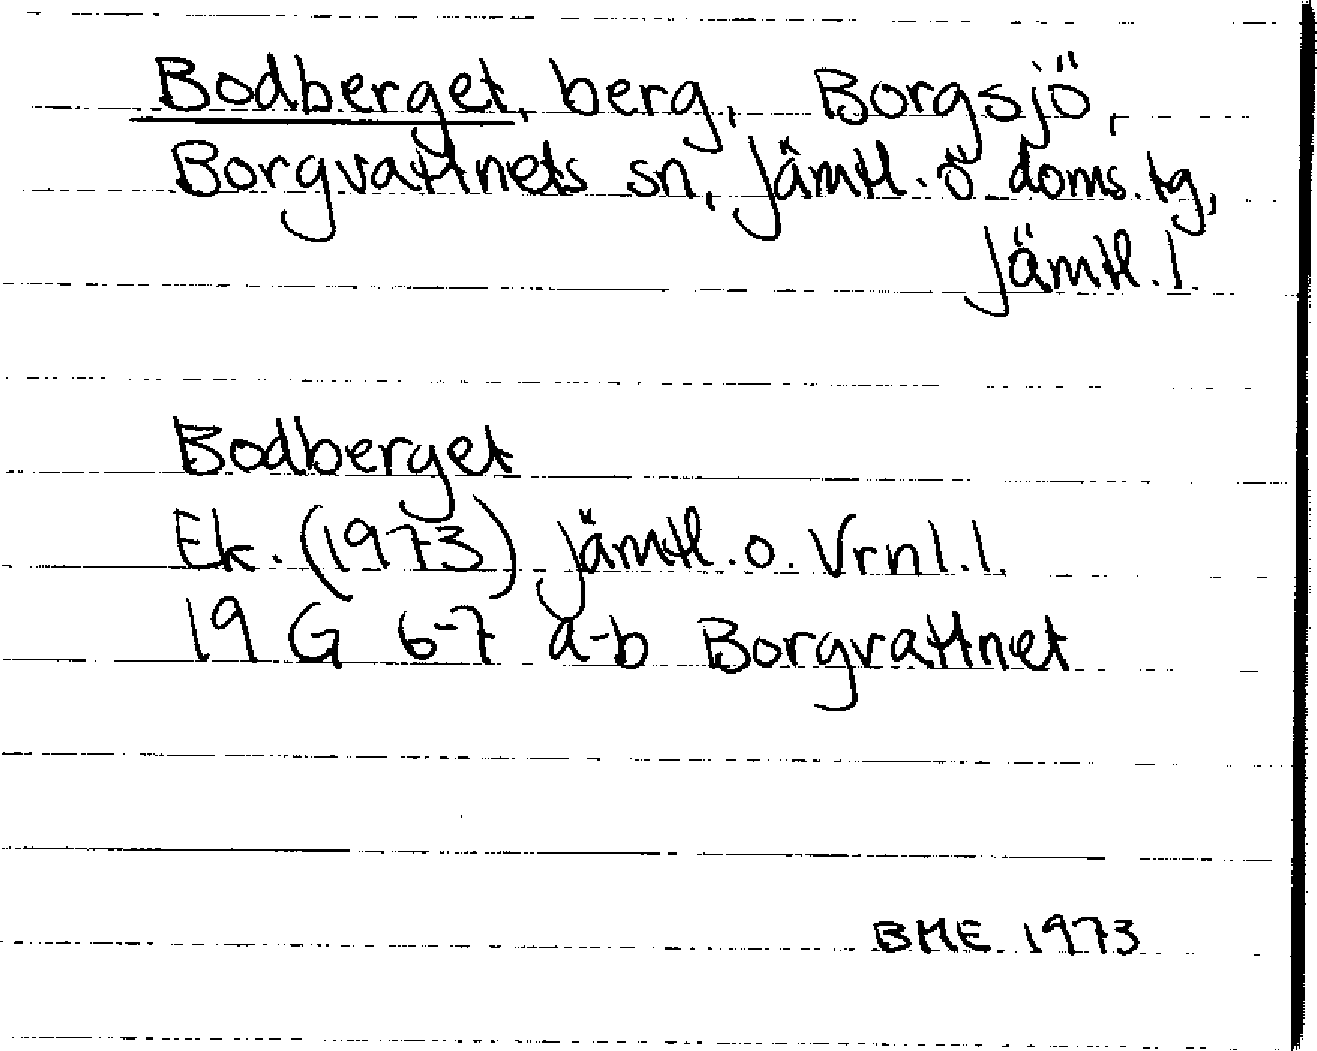 Bodberget, berg, Borgsjö,
Borgvattnets sn, Jämtl. ö doms. tg,
Jämtl. l
Bodberget
Ek. (1973) Jämtl. o. Vrnl. l.
19 G 6-7 a-b Borgvattnet
BME 1973